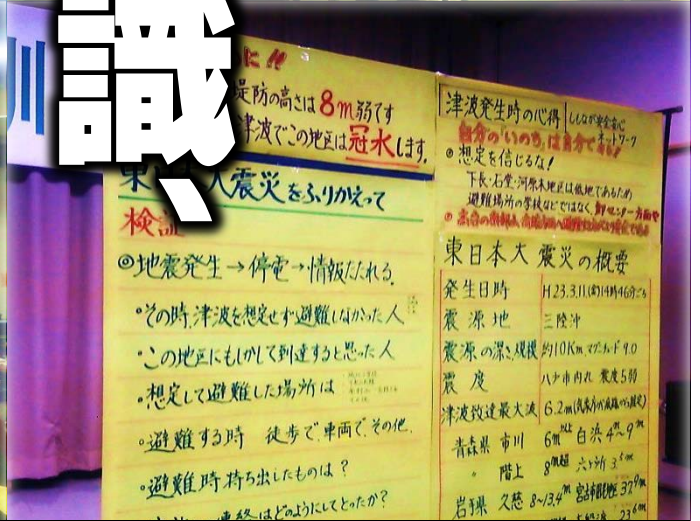 識、
川
に!!
堤防の高さは8m弱です
津波でこの地区は冠水します。
大震災をふりかえって
検証
◎地震発生→停電→情報たたれる。
・その時、津波を想定せず避難しなかった人
・この地区にもしかして到達すると思った人
・想定して避難した場所は
・避難する時 徒歩で、車両で、その他、
・避難時持ち出したものは?
連絡はどのようにしてとったか?
津波発生時の心得
ししなが安全安心
ネットワーク
自分の"いのち"は自分で守る!
◎想定を信じるな!
下長・石堂・河原木地区は低地であるため
避難場所の学校などではなく、
東日本大震災の概要
発生日時 H23.3.11.(金)14時46分ごろ
震源地 三陸沖
震源の深さ、規模 約10Km、マグニチュード9.0
震度 八戸市内丸 震度5弱
津波到達最大波 6.2m
青森県 市川 6m以上 白浜 4m~9m
〃 階上 8m超 六ヶ所
岩手県 久慈 8~13.4m